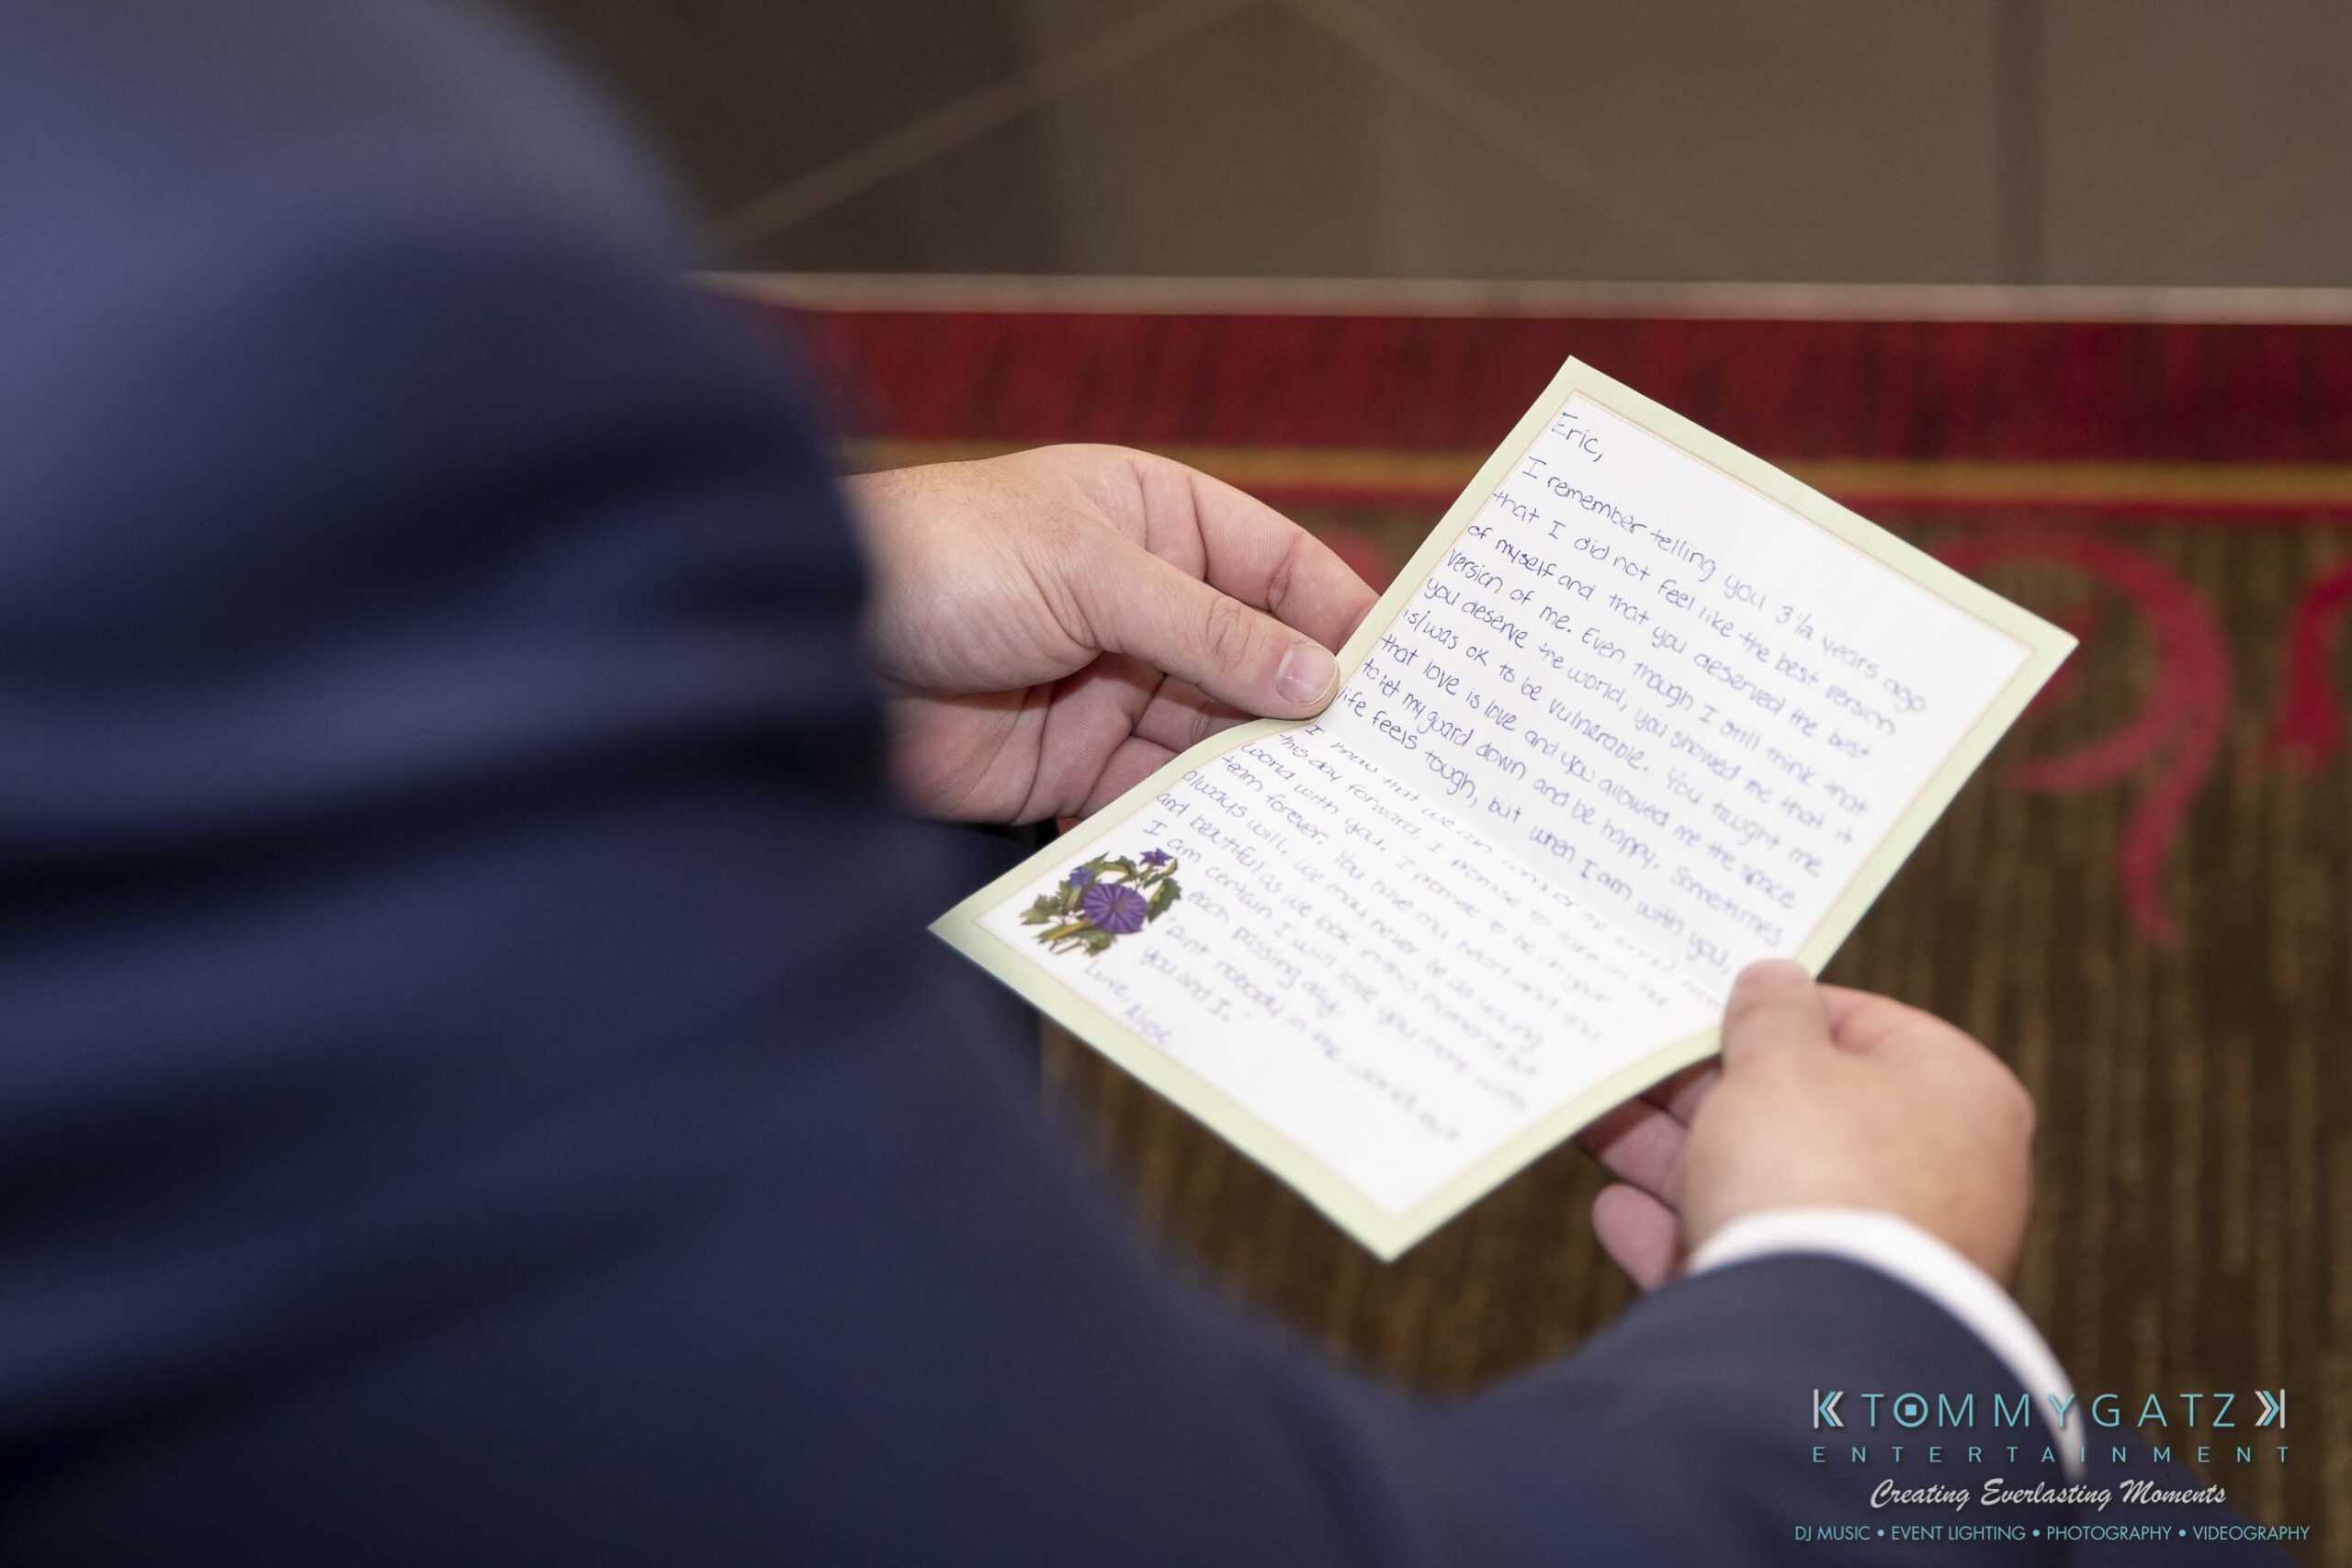 Eric,
I remember telling you 3 1/2 years ago
that I did not feel like the best version
of myself and that you deserved the best
version of me. Even though I still think that
you deserve the world, you showed me that it
is/was ok to be vulnerable. You taught me
that love is love and you allowed me the space
to let my guard down and be happy. Sometimes
life feels tough, but when I am with you,
I know that we can conquer the world. From
this day forward, I promise to take on the
world with you. I promise to be on your
team forever. You have my heart and you
always will. We may never be as young
and beautiful as we look in this moment but
I am certain I will love you more with
each passing day.
Aint nobody in the world but
you and I.
Love, Alyse
TOMMYGATZ
ENTERTAINMENT
Creating Everlasting Moments
DJ MUSIC • EVENT LIGHTING • PHOTOGRAPHY • VIDEOGRAPHY